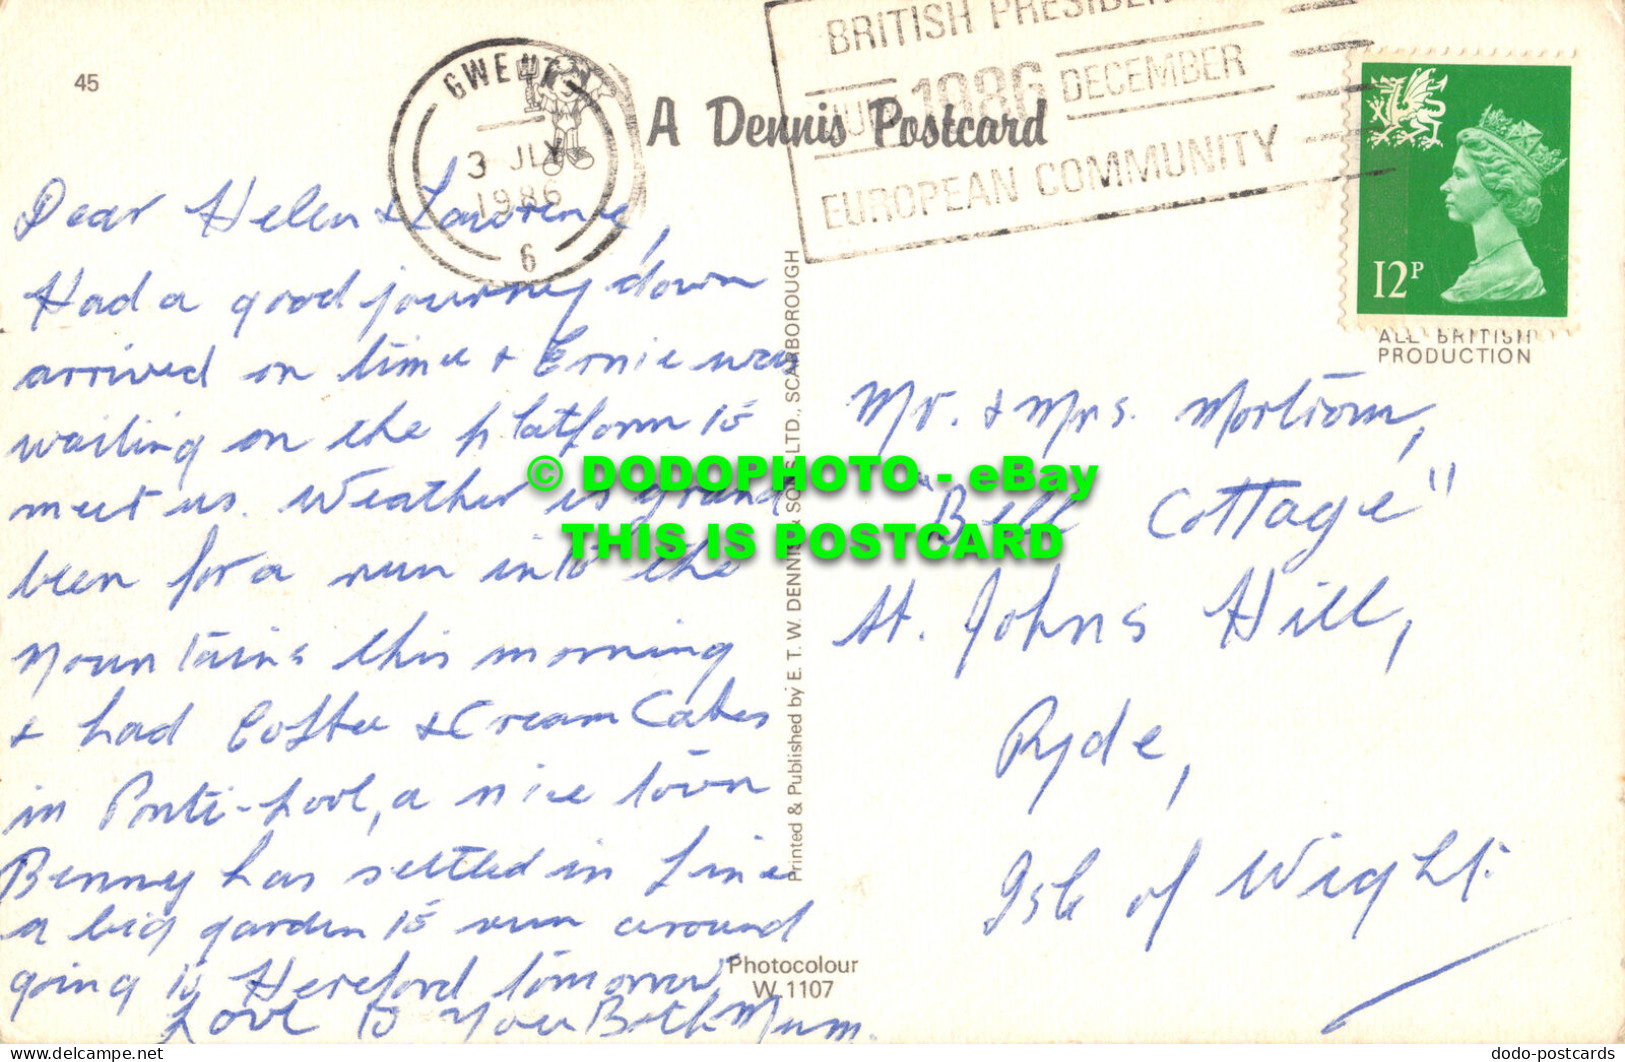 45
GWENT
3 JLY
1986
6
BRITISH PRESIDEN
JULY 1986 DECEMBER
EUROPEAN COMMUNITY
12P
A Dennis Postcard
ALL BRITISH
PRODUCTION
Dear Helen & Lawrence,
Had a good journey down
arrived on time & Ernie was
waiting on the platform to
meet us. Weather is grand
been for a run into the
Mountains this morning
& had Coffee & Cream Cakes
in Ponti-pool, a nice town
Benny has settled in fine
a big garden to run around
going to Hereford tomorrow
Love to you Both Mum.
Printed & Published by E. T. W. DENNIS & SONS LTD., SCARBOROUGH
Mr. & Mrs. Mortram,
"Bell Cottage"
St. Johns Hill,
Ryde,
Isle of Wight.
Photocolour
W 1107
© DODOPHOTO - eBay
THIS IS POSTCARD
dodo-postcards